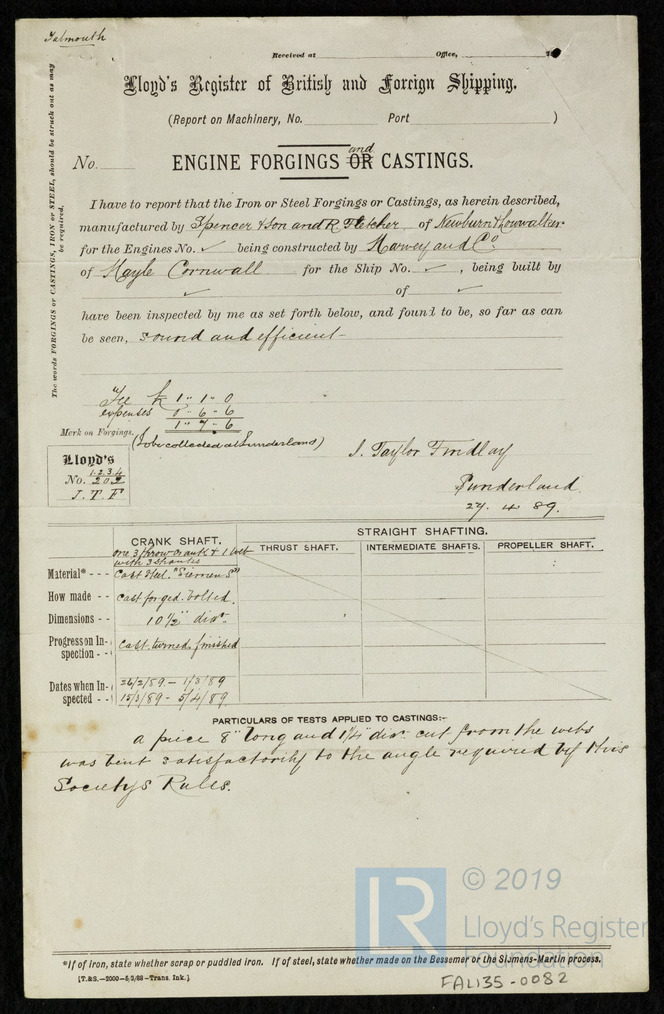 Falmouth
Received at Office, 18
Lloyd's Register of British and Foreign Shipping.
(Report on Machinery, No. Port )
and
No. ENGINE FORGINGS OR CASTINGS.
The words FORGINGS or CASTINGS, IRON or STEEL, should be struck out as may be required.
I have to report that the Iron or Steel Forgings or Castings, as herein described,
manufactured by Spencer & Son and R. Fletcher of Newburn & Lowwalker
for the Engines No. ✓ being constructed by Harvey and Co.
of Hayle Cornwall for the Ship No. ✓, being built by
✓ of ✓
have been inspected by me as set forth below, and found to be, so far as can
be seen, sound and efficient -
Fee £ 1 " 1 " 0
expenses 0 " 6 - 6
1 " 7 - 6
Mark on Forgings. (to be collected at Sunderland)
J. Taylor Findlay
Lloyd's
1.2.3.4
No. 202
J. T F
Sunderland
27. 4. 89.
CRANK SHAFT. STRAIGHT SHAFTING.
THRUST SHAFT. INTERMEDIATE SHAFTS. PROPELLER SHAFT.
one 3 throw crank & 1
with 3
Material* - - - Cast Steel. "Siemens"
How made - - Cast forged. bolted.
Dimensions - - 10 1/2" dir.
Progress on In-spection - - Cast. turned. finished
Dates when In-spected - - 26/2/89. - 1/3/89
15/3/89 - 5/4/89.
PARTICULARS OF TESTS APPLIED TO CASTINGS:-
a piece 8" long and 1 1/4" dir. cut from the webs
was bent satisfactorily to the angle required by this
Societys Rules.
© 2019
LR
Lloyd's Register
Foundation
*If of iron, state whether scrap or puddled iron. If of steel, state whether made on the Bessemer or the Siemens-Martin process.
[T.&S.—2000—5/3/88—Trans. Ink.]
FAL135-0082